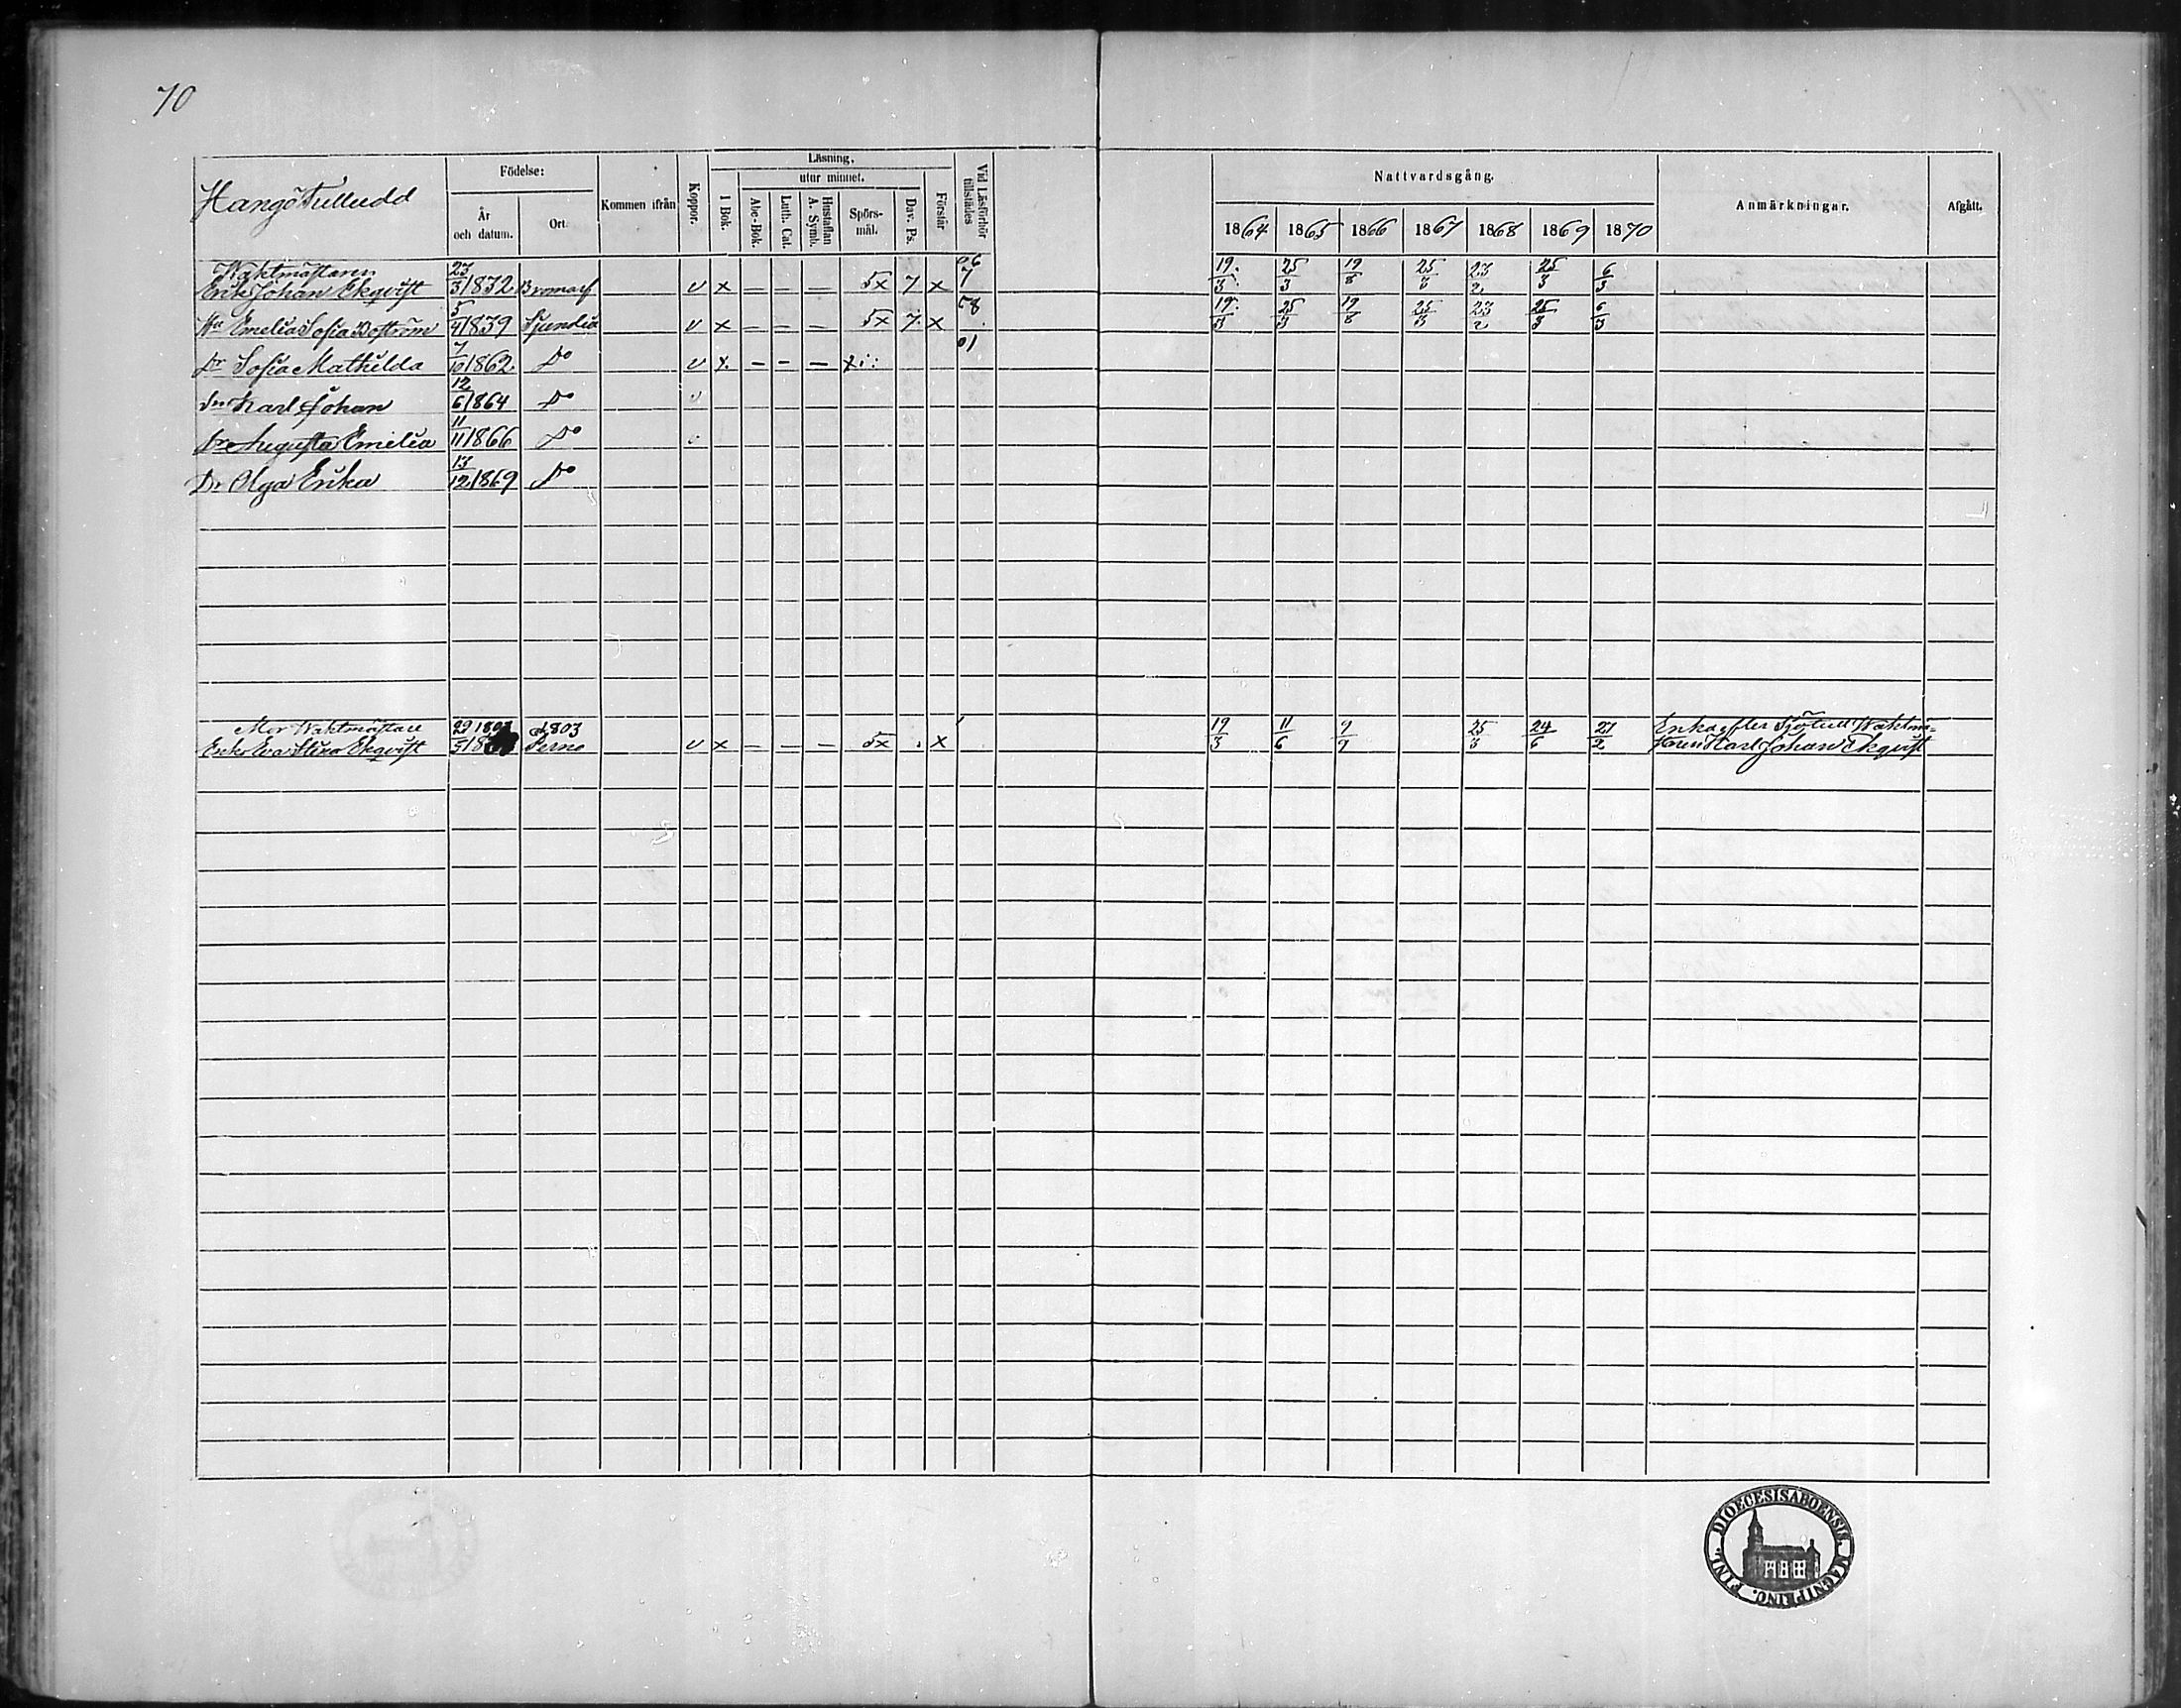 70
Hangö Tulludd
Födelse:
År och datum.
Ort.
Kommen ifrån
Koppor.
Läsning.
utur minnet.
I Bok.
Abc-Bok.
Luth. Cat.
Hustaflan A. Symb.
Spörs-mål.
Dav. Ps.
Förstår
Vid Läsförhör tillstädes
Nattvardsgång.
1864 1865 1866 1867 1868 1869 1870
Anmärkningar.
Afgått.
Waktmästaren
Erik Johan Ekqvist 23/3 1832 Bromarf v x — — — 5x 7 x 19/3 25/3 19/8 25/3 23/2 25/3 6/3
Hu Emelia Sofia Boström 5/4 1839 Sjundeå v x — — — 5x 7. x 19/3 25/3 19/8 25/3 23/2 25/3 6/3
Dr Sofia Mathilda 7/10 1862 Do v x — — —
Sn Karl Johan 12/6 1864 Do
Dr Augusta Emelia 11/11 1866 Do
Dr Olga Erika 13/12 1869 Do
Mor Waktmästare 1803
Enka Eva Stina Ekqvist 29/5 Perno v x — — — 5x x 19/3 11/6 25/3 24/6 27/2
Enka efter Sjötull Waktmä-
staren Karl Johan Ekqvist
FINL. DIOECESIS ABOENSIS MAGNI PRINC.